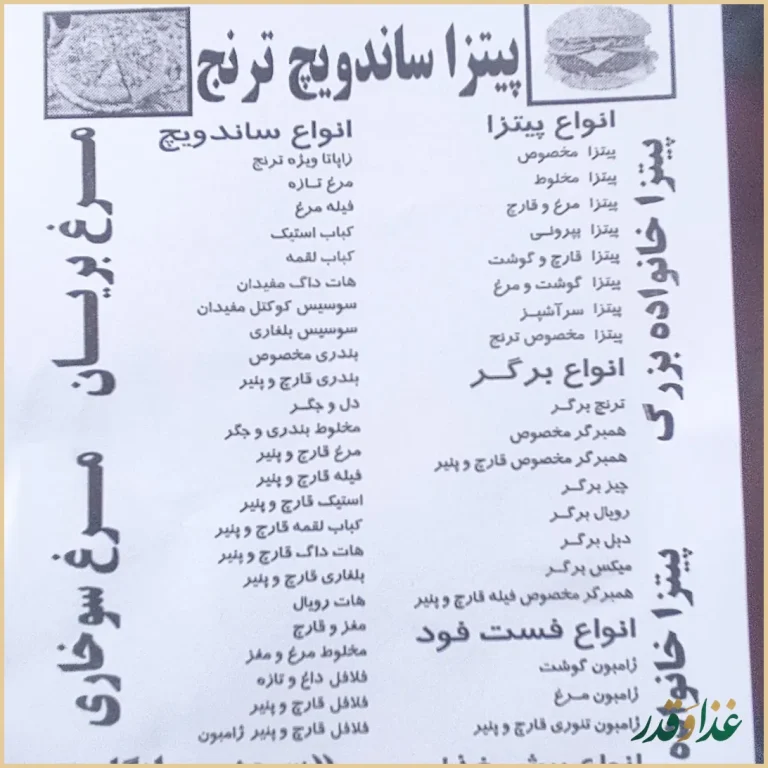 پیتزا ساندویچ ترنج
انواع پیتزا
پیتزا مخصوص
پیتزا مخلوط
پیتزا مرغ و قارچ
پیتزا پپرونی
پیتزا قارچ و گوشت
پیتزا گوشت و مرغ
پیتزا سرآشپز
پیتزا مخصوص ترنج
انواع برگر
ترنج برگر
همبرگر مخصوص
همبرگر مخصوص قارچ و پنیر
چیز برگر
رویال برگر
دبل برگر
میکس برگر
همبرگر مخصوص فیله قارچ و پنیر
انواع فست فود
ژامبون گوشت
ژامبون مرغ
ژامبون تنوری قارچ و پنیر
انواع
پیتزا خانواده بزرگ
پیتزا خانواده
انواع ساندویچ
زاپاتا ویژه ترنج
مرغ تازه
فیله مرغ
کباب استیک
کباب لقمه
هات داگ مفیدان
سوسیس کوکتل مفیدان
سوسیس بلغاری
بندری مخصوص
بندری قارچ و پنیر
دل و جگر
مخلوط بندری و جگر
مرغ قارچ و پنیر
فیله قارچ و پنیر
استیک قارچ و پنیر
کباب لقمه قارچ و پنیر
هات داگ قارچ و پنیر
بلغاری قارچ و پنیر
هات رویال
مغز و قارچ
مخلوط مرغ و مغز
فلافل داغ و تازه
فلافل قارچ و پنیر
فلافل قارچ و پنیر ژامبون
مرغ بریان
مرغ سوخاری
غذا و قدر